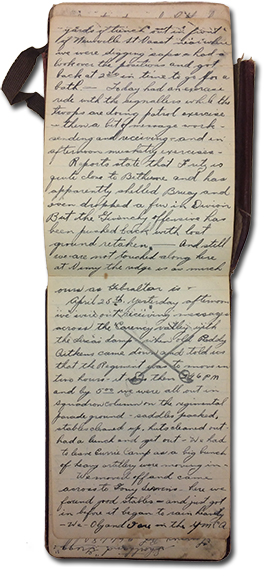 yards of trench out in front
of Neuville St Vaast
we were digging and so had a
look over the positions and got
back at 2 in time to go for a
bath — Today had an exercise
ride with the signallers while the
troops are doing patrol exercise
— then a bit of message work -
sending and receiving - and in
afternoon musketry exercises -
Reports state that Fritz is
quite close to Bethune and has
apparently shelled Bruay and
even dropped a few in Divion
But the Givenchy offensive has
been pushed back with lost
ground retaken. — And still
we are not touched along here
at Vimy the ridge is as much
ours as Gibraltar is -
April 25th Yesterday afternoon
we were out receiving messages
across the Carency valley with
the lamp when old Paddy
Aitkens came down and told us
that the Regiment was to move in
two hours - it was then PM
and by 5 we were all out in
squadron column on the regimental
parade ground - saddles packed,
stables cleaned up, huts cleaned out
had a lunch and got out - We had
to leave Camp as a big bunch
of heavy artillery were moving in -
We moved off and came
across to Servins. Here we
found good stables - and just got
in before it began to rain
- We and on the YMCA